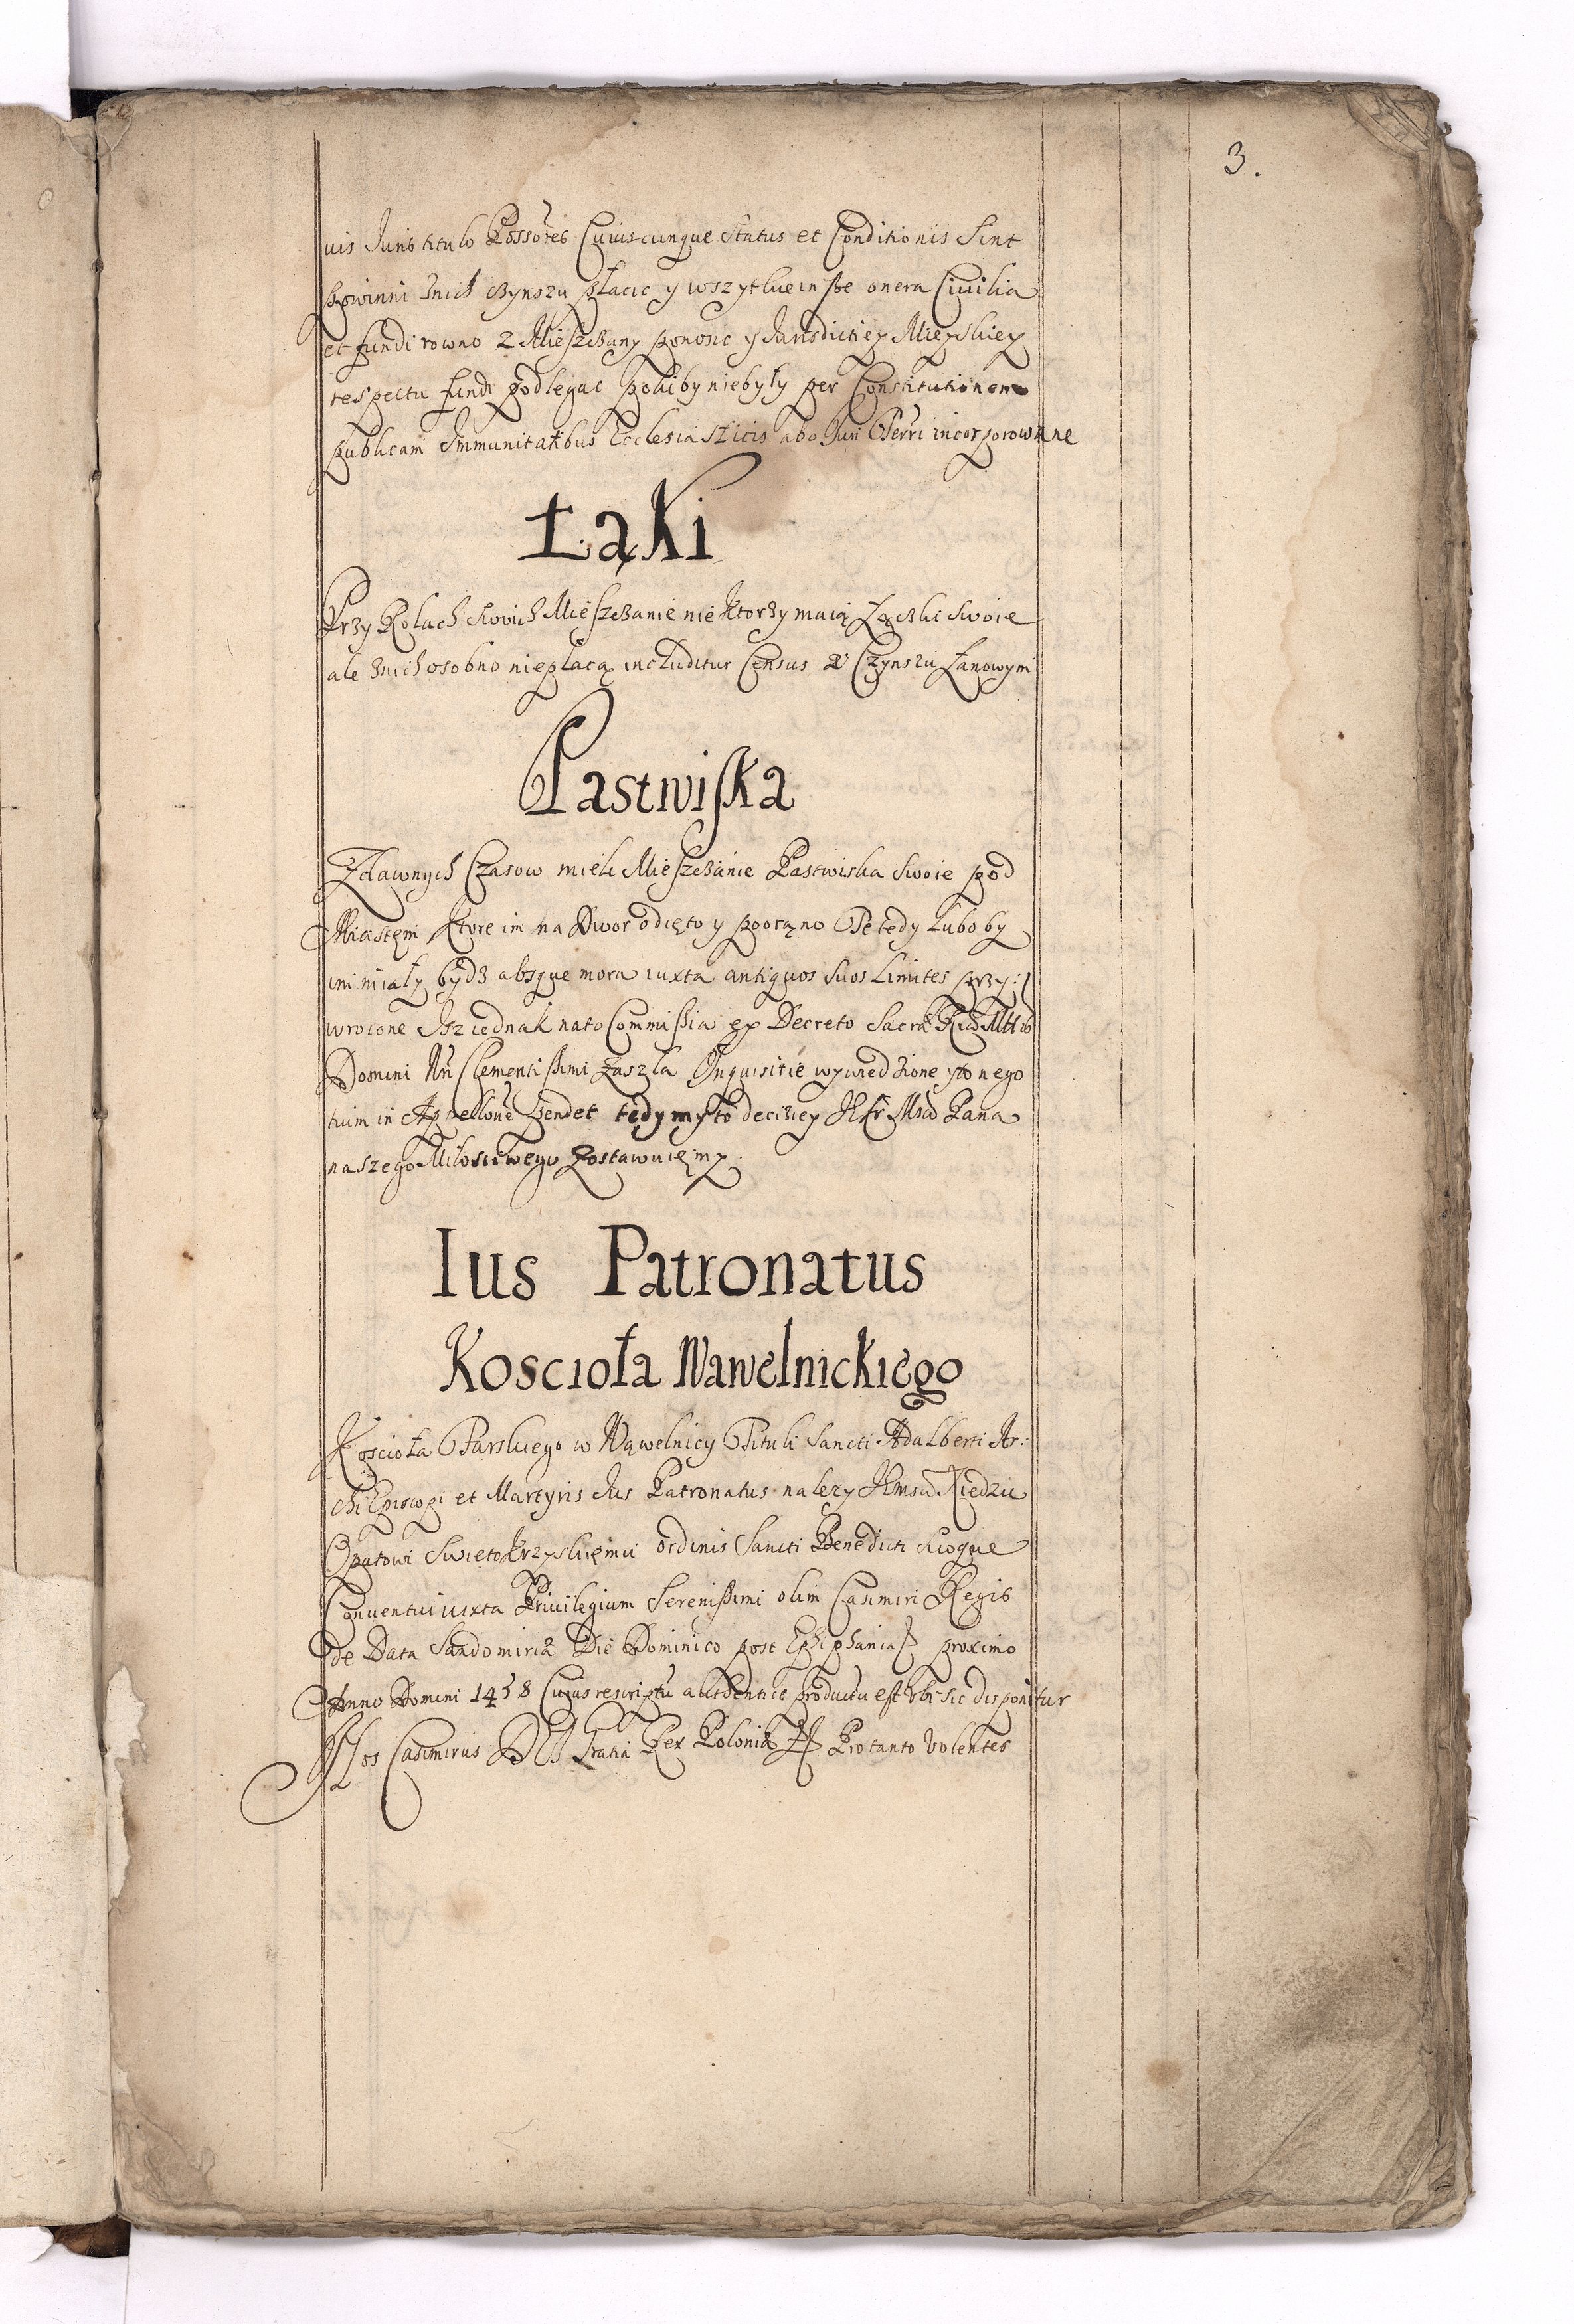 3.
uis Juris titulo Possores Cuiuscunque Status et Conditionis Sint
powinni znich czynszu płacic y wszytkie insze onera Ciuilia
et fundi rowno z Mieszczany ponosic y Jurisdictiey Mieyskiey
respectu fundi podlegac pokiby niebyły per Constitutionem
publicam Immunitatibus Ecclesiasticis abo Juri Terri incorporowane
Łąki
Przy Rolach swoich Mieszczanie niektorzy maią Łączki swoie
ale znich osobno niepłacą includitur Census w Czynszu Łanowym
Pastwiska
Zdawnych Czasow mieli Mieszczanie Pastwiska swoie pod
Miastem ktore im na Dwor odięto y poorano Te tedy luboby
im miały bydz absque mora iuxta antiquos suos Limites przy:
wrocone Isz iednak nato Commissia ex Decreto Sacræ
Domini Nri Clementissimi zaszła Inquisitie wywiedzione y to nego
tium in Appellone pendet tedy my to deciziey Pana
naszego Miłosciwego Zostawuięmy
Ius Patronatus
Koscioła Wawelnickiego
Koscioła Farskiego w Wąwelnicy Tituli Sancti Adalberti Ar:
chiEpiscopi et Martyris Jus Patronatus nalezy Xiedzu
Opatowi Swietokrzyskięmu ordinis Sancti Benedicti
Conuentui iuxta Priuilegium Serenissimi olim Casimiri Regis
de Data Sandomiriæ Die Dominico post Epiphaniaȝ proximo
Anno Domini 1458 Cuius rescriptū authentice productū est vbi sic disponitur
Nos Casimirus DEI Gratia Rex Poloniæ Pro tanto Volentes